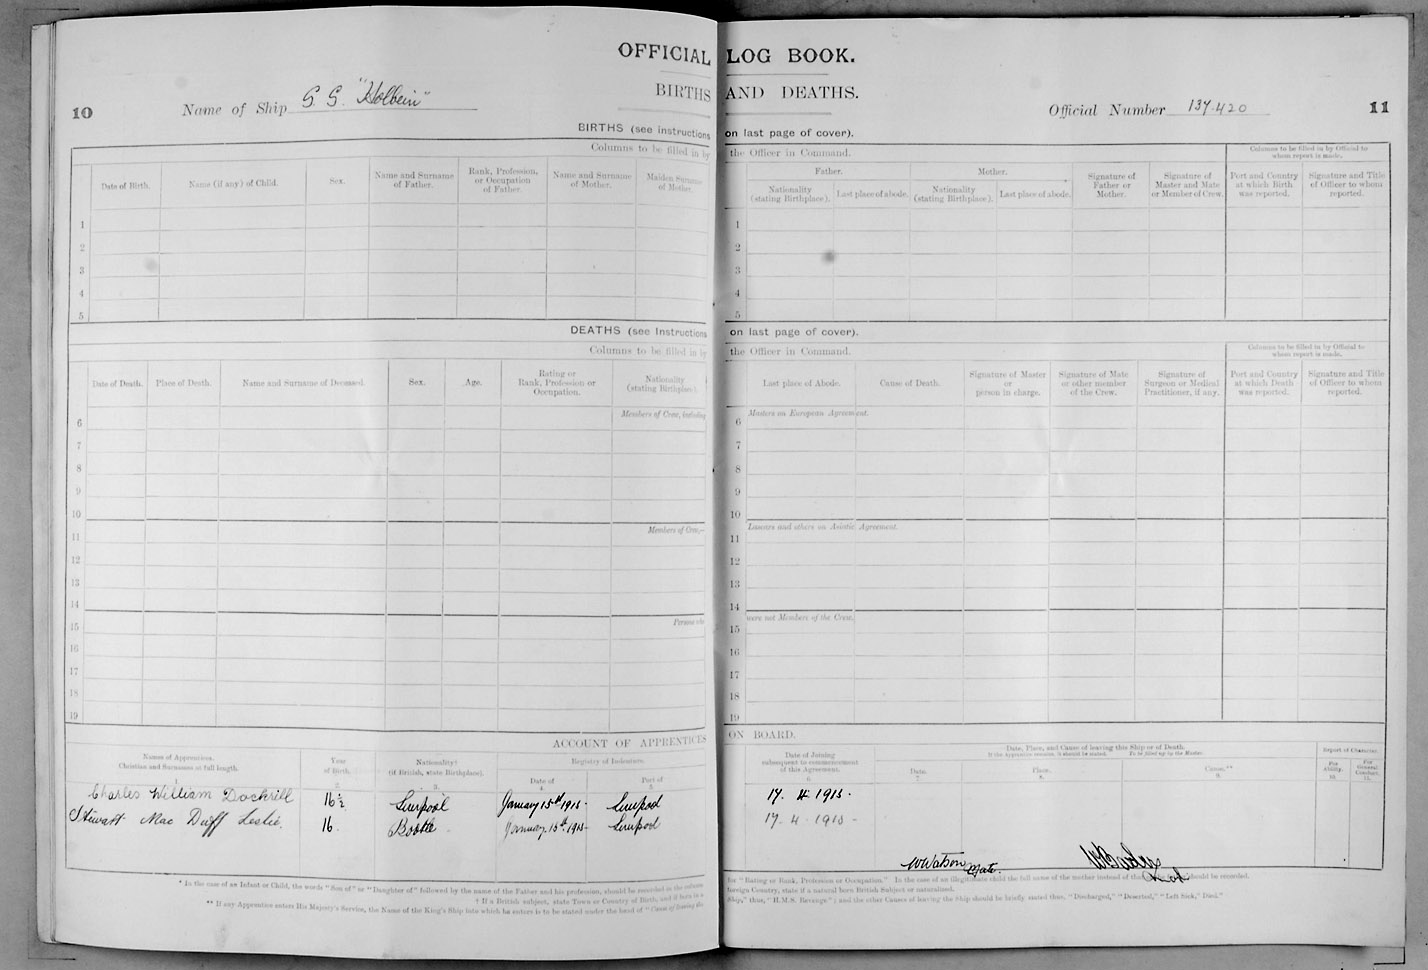 OFFICIAL LOG BOOK.
10 Name of Ship S.S. "Holbein" BIRTHS AND DEATHS. Official Number 137.420 11
BIRTHS (see instructions on last page of cover).
Columns to be filled in by the Officer in Command. Columns to be filled in by Official to whom report is made.
Father. Mother.
Date of Birth. Name (if any) of Child. Sex. Name and Surname of Father. Rank, Profession, or Occupation of Father. Name and Surname of Mother. Maiden Surname of Mother. Nationality (stating Birthplace). Last place of abode. Nationality (stating Birthplace). Last place of abode. Signature of Father or Mother. Signature of Master and Mate or Member of Crew. Port and Country at which Birth was reported. Signature and Title of Officer to whom reported.
1 1
2 2
3 3
4 4
5 5
DEATHS (see Instructions on last page of cover).
Columns to be filled in by the Officer in Command. Columns to be filled in by Official to whom report is made.
Date of Death. Place of Death. Name and Surname of Deceased. Sex. Age. Rating or Rank, Profession or Occupation. Nationality (stating Birthplace). Last place of Abode. Cause of Death. Signature of Master or person in charge. Signature of Mate or other member of the Crew. Signature of Surgeon or Medical Practitioner, if any. Port and Country at which Death was reported. Signature and Title of Officer to whom reported.
Members of Crew, including Masters on European Agreement.
6 6
7 7
8 8
9 9
10 10
Members of Crew,— Lascars and others on Asiatic Agreement.
11 11
12 12
13 13
14 14
Persons who were not Members of the Crew.
15 15
16 16
17 17
18 18
19 19
ACCOUNT OF APPRENTICES ON BOARD.
Names of Apprentices. Christian and Surnames at full length. Year of Birth. Nationality† (if British, state Birthplace). Registry of Indenture. Date of Joining subsequent to commencement of this Agreement. Date, Place, and Cause of leaving this Ship or of Death. Report of Character.
If the Apprentice remains, it should be stated. To be filled up by the Master.
Date of Port of Date. Place. Cause.** For Ability. For General Conduct.
1. 2. 3. 4. 5. 6. 7. 8. 9. 10. 11.
Charles William Dockrill 16½ Liverpool January 15th 1915 - Liverpool 17. 4. 1915.
Stewart Mac Duff Leslie. 16. Bootle January 15th 1915 - Liverpool 17. 4. 1915 -
W Watson Mate.
* In the case of an Infant or Child, the words "Son of" or "Daughter of" followed by the name of the Father and his profession, should be recorded in the column for "Rating or Rank, Profession or Occupation." In the case of an illegitimate child the full name of the mother instead of that should be recorded.
† If a British subject, state Town or Country of Birth, and if born in a foreign Country, state if a natural born British Subject or naturalized.
** If any Apprentice enters His Majesty's Service, the Name of the King's Ship into which he enters is to be stated under the head of "Cause of leaving this Ship," thus, "H.M.S. Revenge"; and the other Causes of leaving the Ship should be briefly stated thus, "Discharged," "Deserted," "Left Sick," "Died."